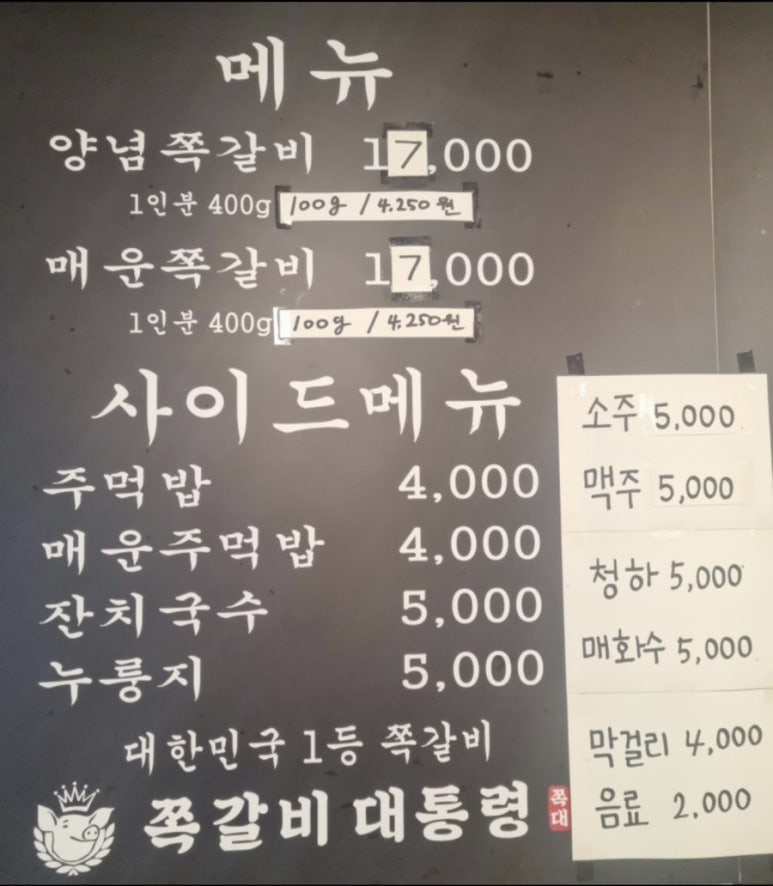 메뉴
양념쪽갈비 17,000
1인분 400g 100g / 4.250원
매운쪽갈비 17,000
1인분 400g 100g / 4.250원
사이드메뉴
주먹밥 4,000
매운주먹밥 4,000
잔치국수 5,000
누룽지 5,000
대한민국 1등 쪽갈비
쪽갈비대통령
쪽대
소주 5,000
맥주 5,000
청하 5,000
매화수 5,000
막걸리 4,000
음료 2,000